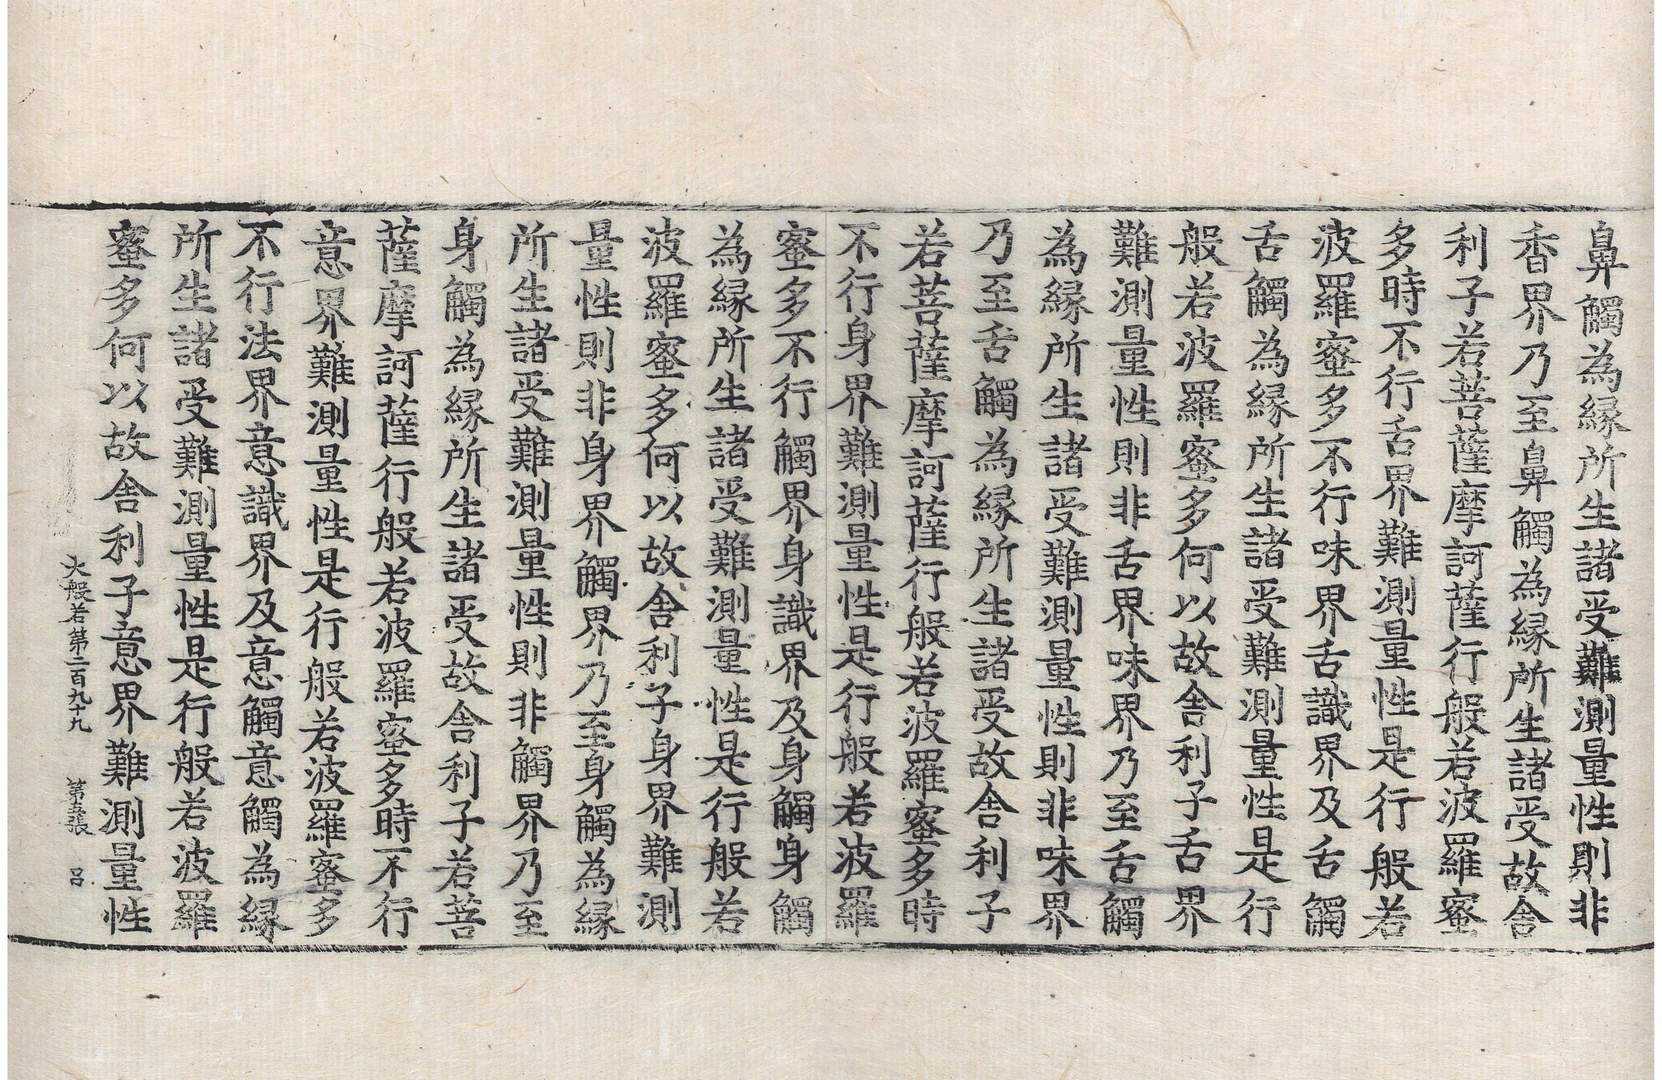 鼻觸為縁所生諸受難測量性則非
香界乃至鼻觸為縁所生諸受故舍
利子若菩薩摩訶薩行般若波羅蜜
多時不行舌界難測量性是行般若
波羅蜜多不行味界舌識界及舌觸
舌觸為縁所生諸受難測量性是行
般若波羅蜜多何以故舍利子舌界
難測量性則非舌界味界乃至舌觸
為縁所生諸受難測量性則非味界
乃至舌觸為縁所生諸受故舍利子
若菩薩摩訶薩行般若波羅蜜多時
不行身界難測量性是行般若波羅
蜜多不行觸界身識界及身觸身觸
為縁所生諸受難測量性是行般若
波羅蜜多何以故舍利子身界難測
量性則非身界觸界乃至身觸為縁
所生諸受難測量性則非觸界乃至
身觸為縁所生諸受故舍利子若菩
薩摩訶薩行般若波羅蜜多時不行
意界難測量性是行般若波羅蜜多
不行法界意識界及意觸意觸為縁
所生諸受難測量性是行般若波羅
蜜多何以故舍利子意界難測量性
大般若第二百九十九 第五張 呂